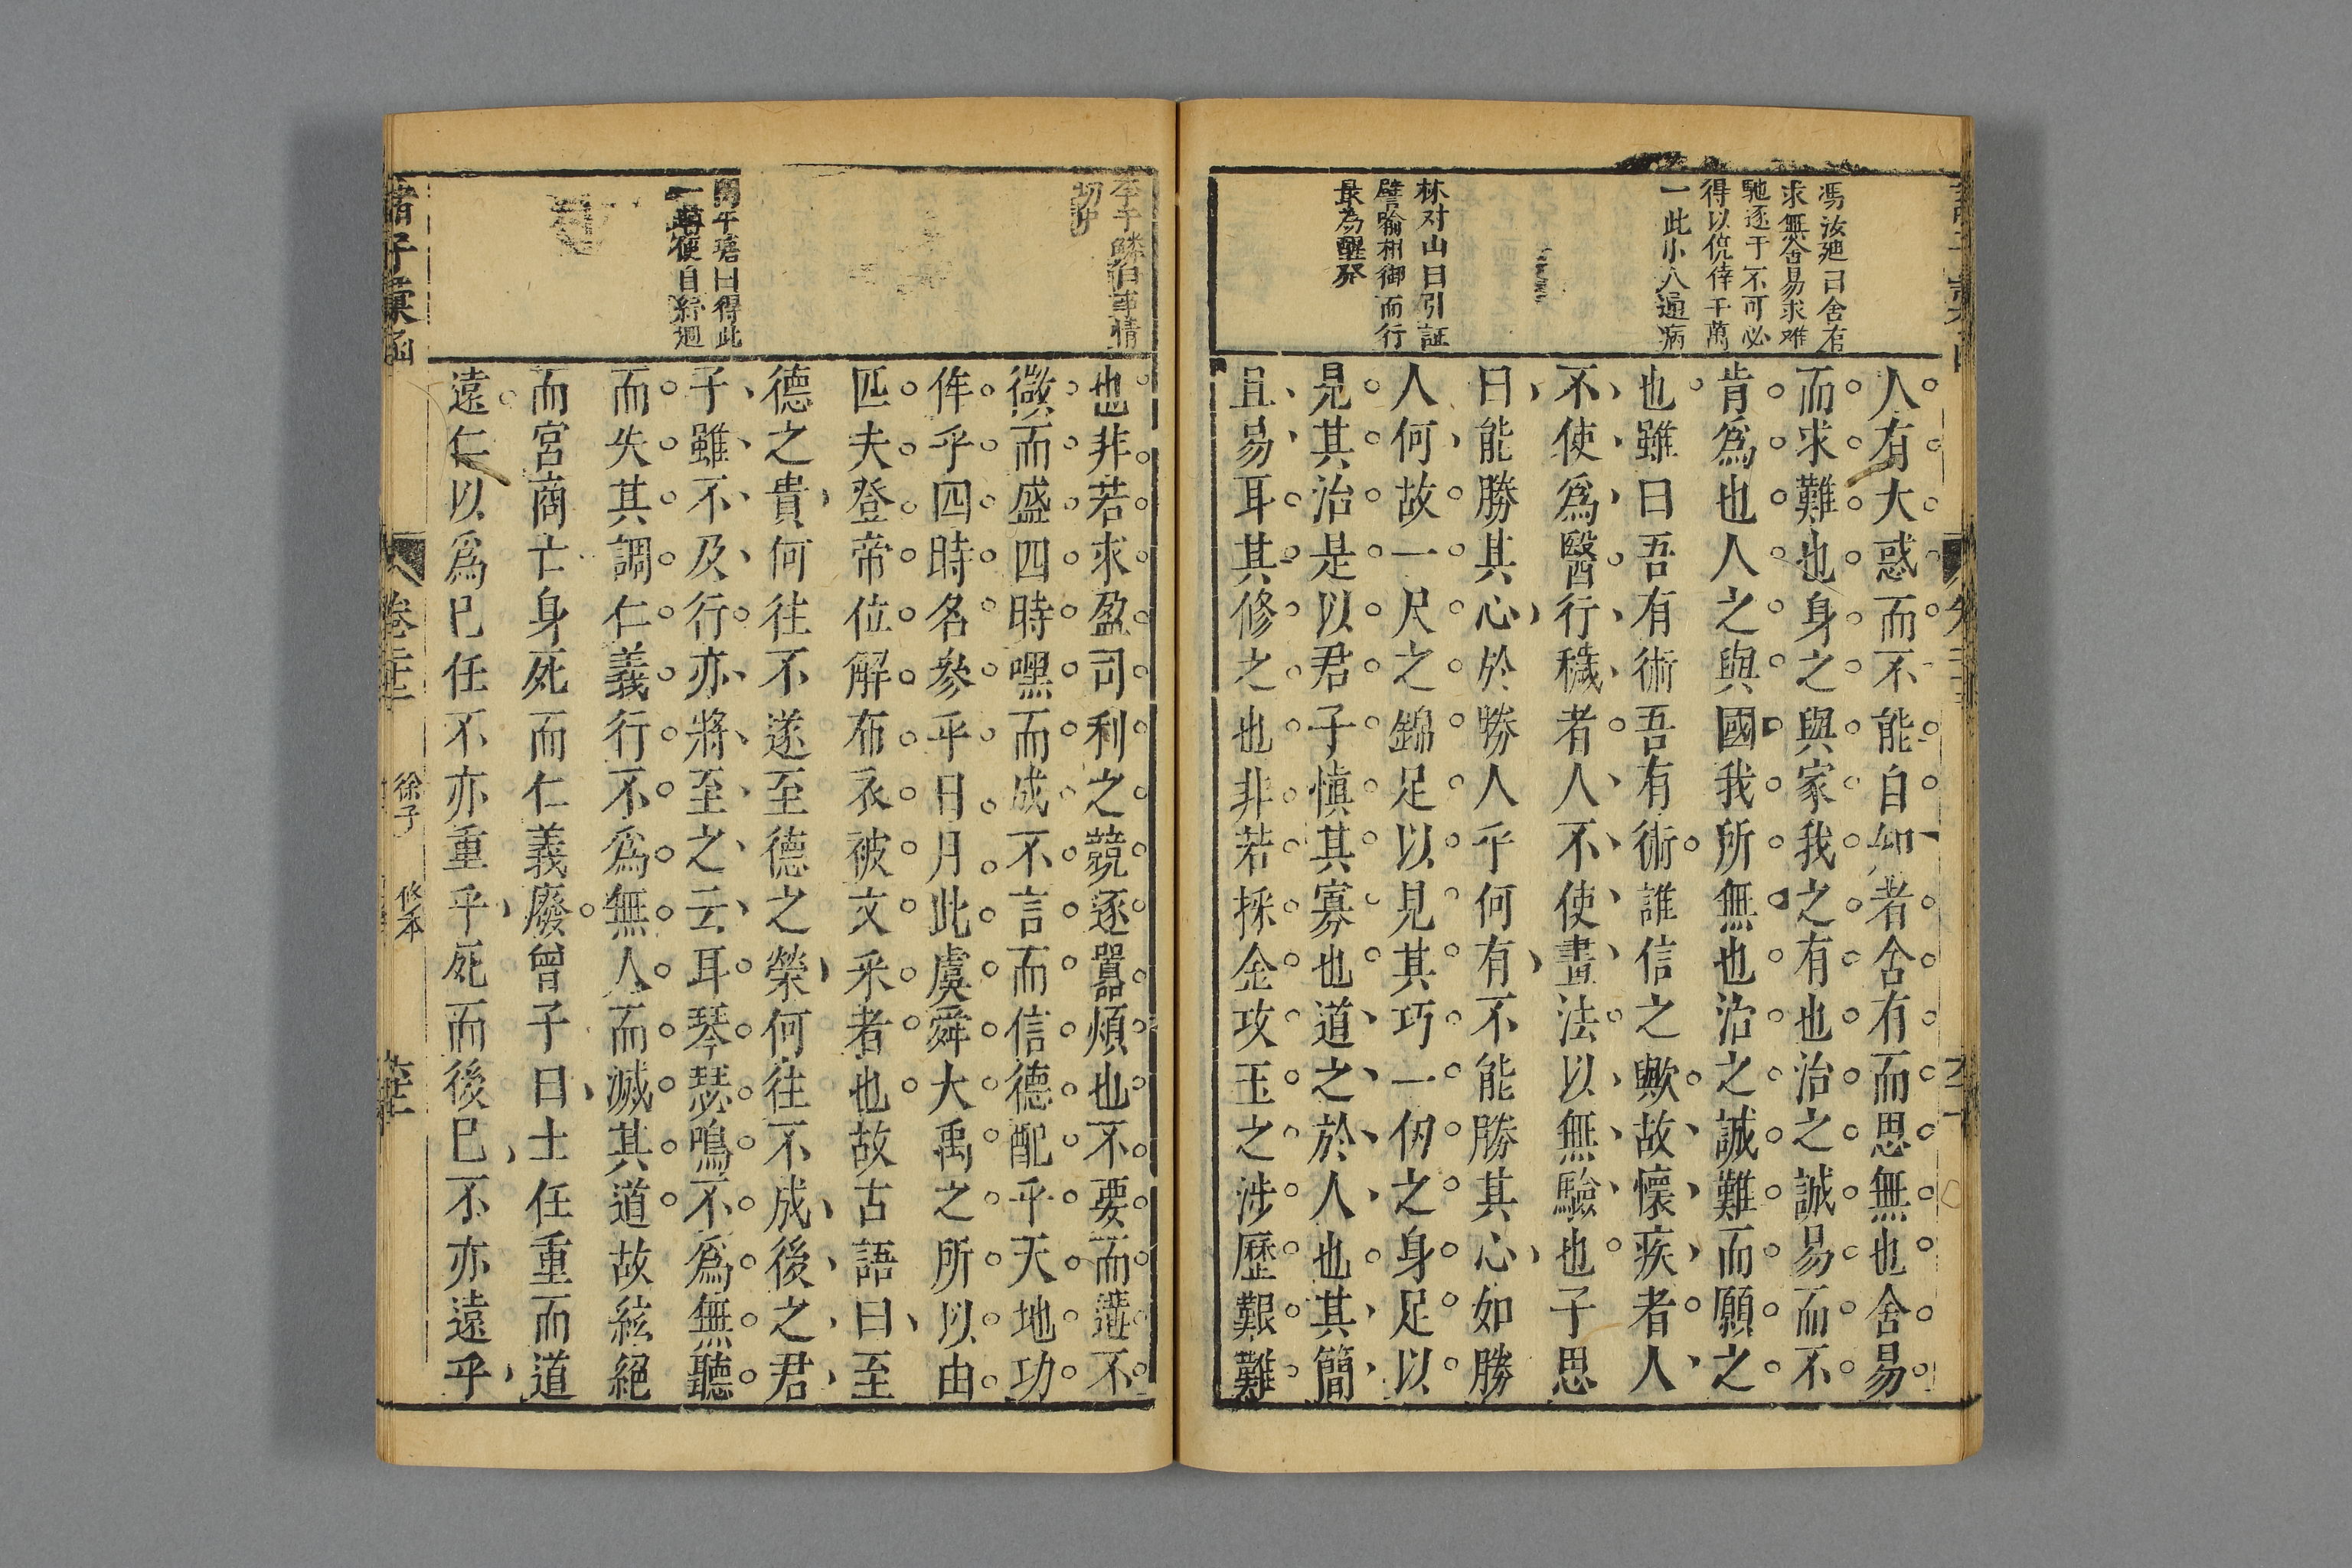 馮汝廸曰舍有
求無舍易求难
馳逐于不可必
得以侥倖千萬
一此小人通病
林对山曰引証
譬喻相御而行
最為醒發
人有大惑而不能自知者舍有而思無也舍易
而求難也身之與家我之有也治之誠易而不
肯爲也人之與國我所無也治之誠難而願之
也雖曰吾有術吾有術誰信之歟故懷疾者人
不使爲醫行穢者人不使畫法以無驗也子思
曰能勝其心於勝人乎何有不能勝其心如勝
人何故一尺之錦足以見其巧一仞之身足以
見其治是以君子慎其寡也道之於人也其簡
且易耳其修之也非若採金攻玉之涉歷艱難
李于鱗曰事情
切中
曰得此
一轉便自紆廻
也非若求盈司利之競逐囂煩也不要而遘不
徵而盛四時嘿而成不言而信德配乎天地功
侔乎四時名參乎日月此虞舜大禹之所以由
匹夫登帝位解布衣被文采者也故古語曰至
德之貴何往不遂至德之榮何往不成後之君
子雖不及行亦將至之云耳琴瑟鳴不爲無聽
而失其調仁義行不爲無人而滅其道故絃絕
而宮商亡身死而仁義廢曾子曰士任重而道
遠仁以爲巳任不亦重乎死而後巳不亦遠乎
諸子彙函
徐子
修本